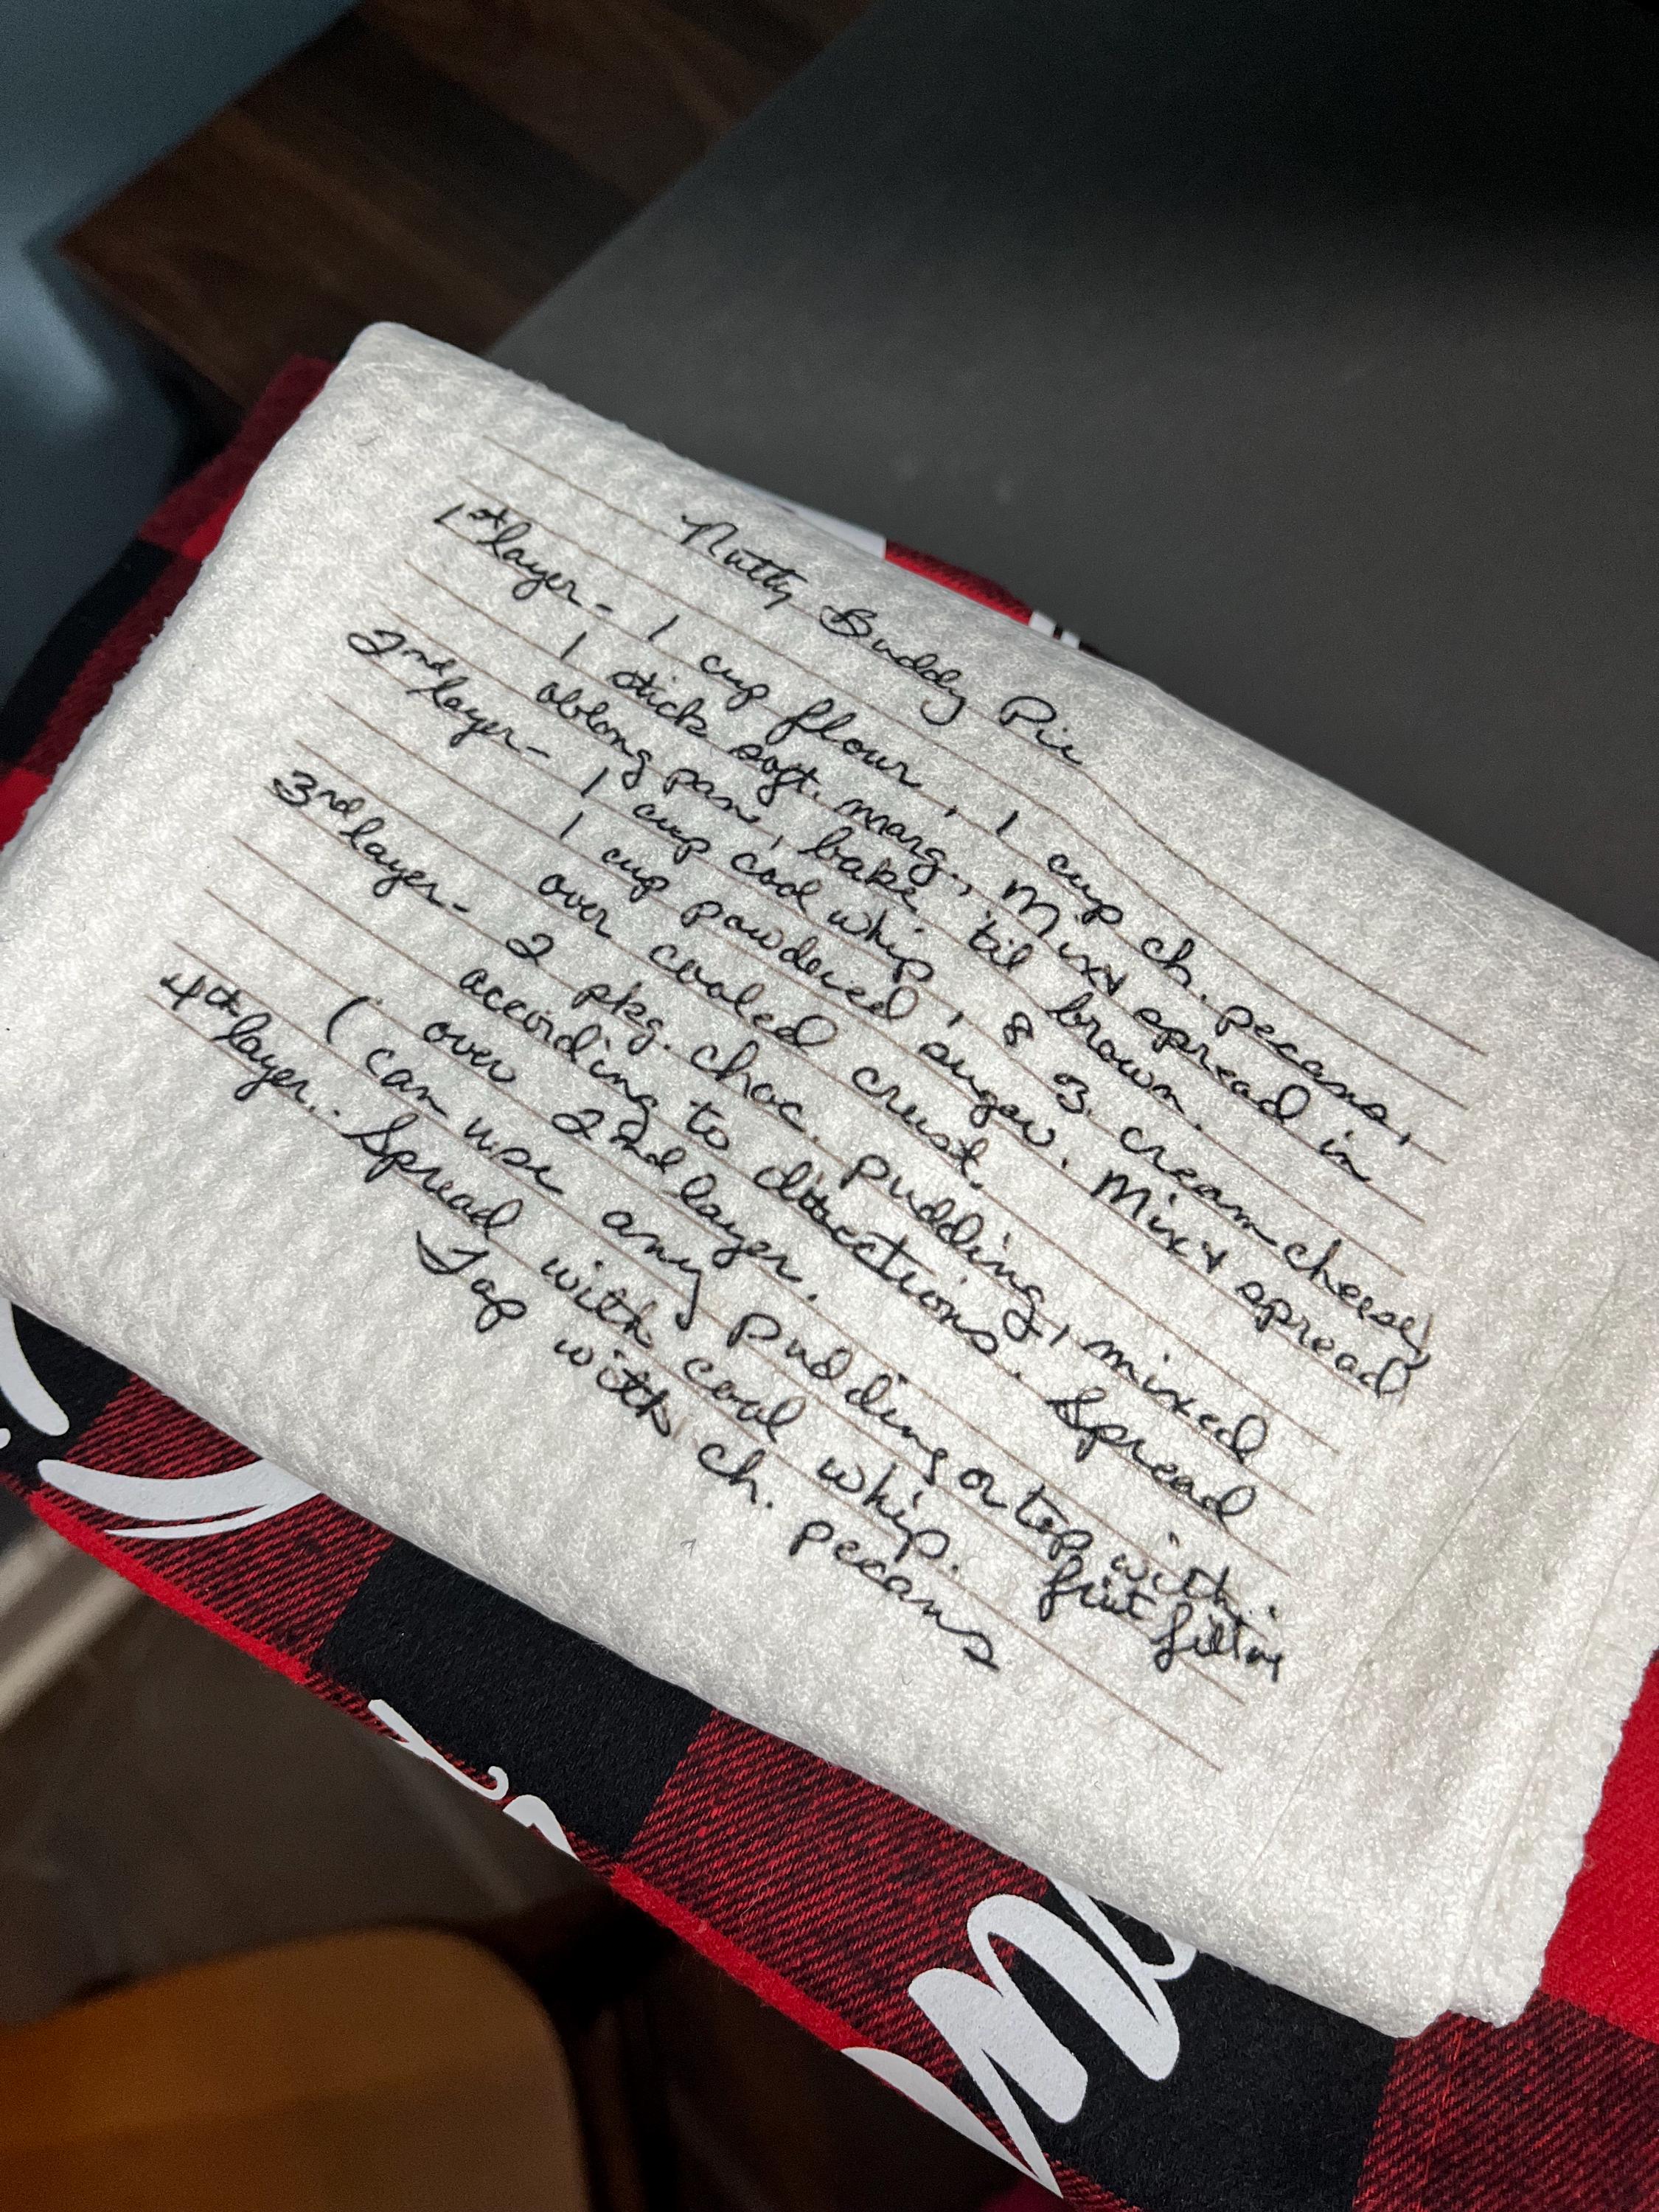 Nutty Buddy Pie
1st layer - 1 cup flour, 1 cup ch. pecans,
1 stick soft. marg., Mix & spread in
oblong pan, bake 'til brown.
2nd layer - 1 cup cool whip, 8 oz. cream cheese,
1 cup powdered sugar. Mix & spread
over cooled crust.
3rd layer - 2 pkg. choc. pudding, mixed
according to directions. Spread
over 2nd layer.
(Can use any pudding or top with
fruit filling
4th layer - Spread with cool whip.
Top with ch. pecans